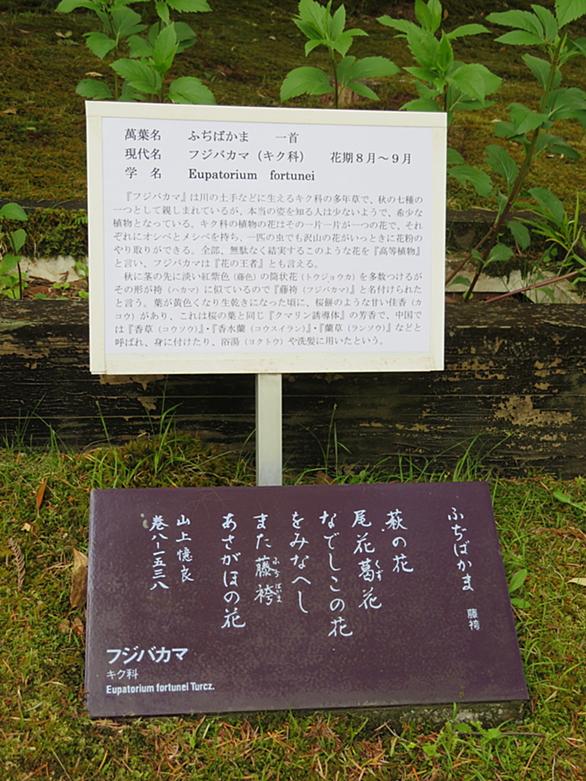 萬葉名　ふぢばかま　一首
現代名　フジバカマ（キク科）　花期８月～９月
学　名　Eupatorium fortunei
『フジバカマ』は川の土手などに生えるキク科の多年草で、秋の七種の
一つとして親しまれているが、本当の姿を知る人は少ないようで、希少な
植物となっている。キク科の植物の花はその一片一片が一つの花で、それ
ぞれにオシベとメシベを持ち、一匹の虫でも沢山の花がいっときに花粉の
やり取りができる。全部、無駄なく結実するこのような花を『高等植物』
と言い、フジバカマは『花の王者』とも言える。
秋に茎の先に淡い紅紫色（藤色）の筒状花（トウジョウカ）を多数つけるが
その形が袴（ハカマ）に似ているので『藤袴（フジバカマ）』と名付けられた
と言う。葉が黄色くなり生乾きになった頃に、桜餅のような甘い佳香（カ
コウ）があり、これは桜の葉と同じ『クマリン誘導体』の芳香で、中国で
は『香草（コウソウ）』・『香水蘭（コウスイラン）』・『蘭草（ランソウ）』などと
呼ばれ、身に付けたり、浴湯（ヨクトウ）や洗髪に用いたという。
ふぢばかま　藤袴
萩の花
尾花葛花
くず
なでしこの花
をみなへし
また藤袴
ふぢばかま
あさがほの花
山上憶良
巻八－一五三八
フジバカマ
キク科
Eupatorium fortunei Turcz.